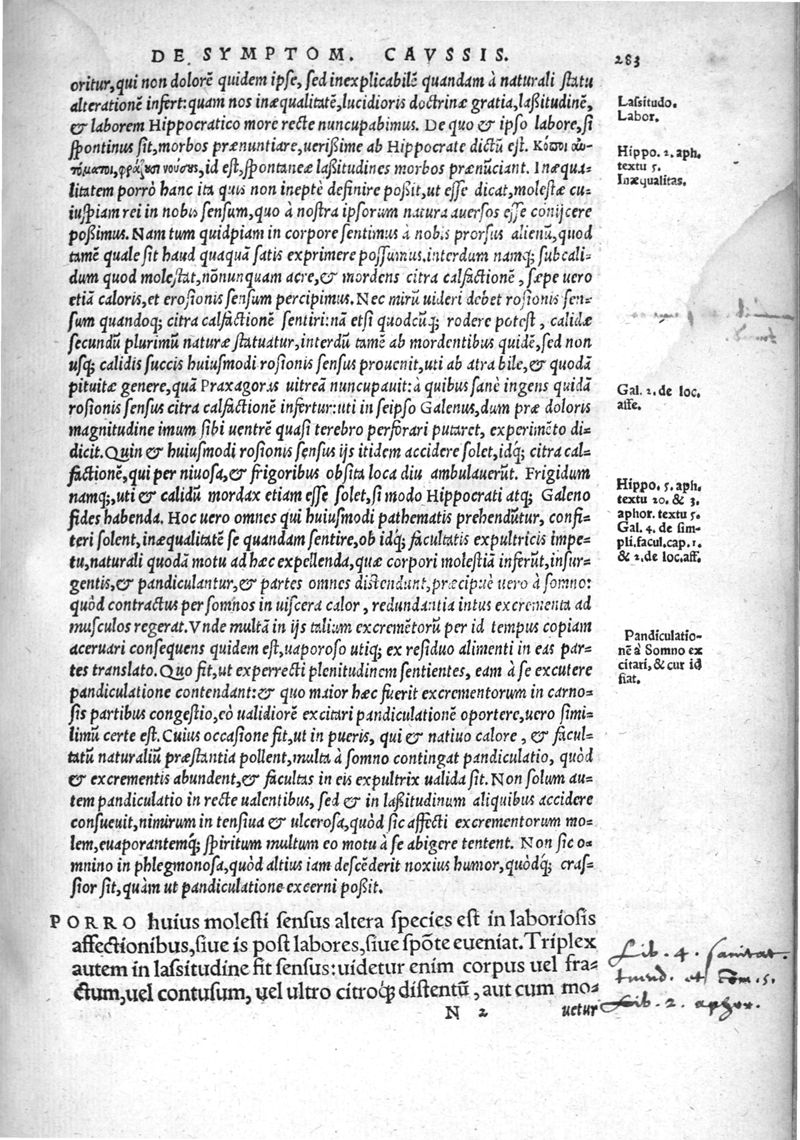 DE SYMPTOM. CAVSSIS.
283
oritur, qui non dolorē quidem ipse, sed inexplicabilē quandam à naturali statu
alterationē infert: quam nos inæqualitatē, lucidioris doctrinæ gratia, laßitudinē,
& laborem Hippocratico more recte nuncupabimus. De quo & ipso labore, si
spontinus sit, morbos prænuntiare, uerißime ab Hippocrate dictū est. Κόποι αὐ-
τόματοι, φράζουσι νούσους, id est, spontaneæ laßitudines morbos prænūciant. Inæqua-
litatem porrò hanc ita quis non ineptè definire poßit, ut esse dicat, molestæ cu-
iuspiam rei in nobis sensum, quo à nostra ipsorum natura auersos esse conijcere
poßimus. Nam tum quidpiam in corpore sentimus à nobis prorsus alienū, quod
tamē quale sit haud quaquā satis exprimere possumus. interdum namq; subcali-
dum quod molestat, nōnunquam acre, & mordens citra calfactionē, sæpe uero
etiā caloris, et erosionis sensum percipimus. Nec mirū uideri debet rosionis sen-
sum quandoq; citra calfactionē sentiri: nā etsi quodcūq; rodere potest, calidæ
secundū plurimū naturæ statuatur, interdū tamē ab mordentibus quidē, sed non
usq; calidis succis huiusmodi rosionis sensus prouenit, uti ab atra bile, & quodā
pituitæ genere, quā Praxagoras uitreā nuncupauit: à quibus sanè ingens quidā
rosionis sensus citra calfactionē infertur: uti in seipso Galenus, dum præ doloris
magnitudine imum sibi uentrē quasi terebro perforari putaret, experimēto di-
dicit. Quin & huiusmodi rosionis sensus ijs itidem accidere solet, idq; citra cal-
factionē, qui per niuosa, & frigoribus obsita loca diu ambulauerūt. Frigidum
namq;, uti & calidū mordax etiam esse solet, si modo Hippocrati atq; Galeno
fides habenda. Hoc uero omnes qui huiusmodi pathematis prehendūtur, confi-
teri solent, inæqualitatē se quandam sentire, ob idq; facultatis expultricis impe-
tu, naturali quodā motu ad hæc expellenda, quæ corpori molestiā inferūt, insur-
gentis, & pandiculantur, & partes omnes distendunt, præcipuè uero à somno:
quòd contractus per somnos in uiscera calor, redundantia intus excrementa ad
musculos regerat. Vnde multā in ijs talium excremētorū per id tempus copiam
aceruari consequens quidem est, uaporoso utiq; ex residuo alimenti in eas par-
tes translato. Quo fit, ut experrecti plenitudinem sentientes, eam à se excutere
pandiculatione contendant: & quo maior hæc fuerit excrementorum in carno-
sis partibus congestio, eò ualidiorē excitari pandiculationē oportere, uero simi-
limū certe est. Cuius occasione fit, ut in pueris, qui & natiuo calore, & facul-
tatū naturaliū præstantia pollent, multa à somno contingat pandiculatio, quòd
& excrementis abundent, & facultas in eis expultrix ualida sit. Non solum au-
tem pandiculatio in recte ualentibus, sed & in laßitudinum aliquibus accidere
consueuit, nimirum in tensiua & ulcerosa, quòd sic affecti excrementorum mo-
lem, euaporantemq; spiritum multum eo motu à se abigere tentent. Non sic o-
mnino in phlegmonosa, quòd altius iam descēderit noxius humor, quòdq; cras-
sior sit, quàm ut pandiculatione excerni poßit.
PORRO huius molesti sensus altera species est in laboriosis
affectionibus, siue is post labores, siue spōte eueniat. Triplex
autem in lassitudine fit sensus: uidetur enim corpus uel fra-
ctum, uel contusum, uel ultro citroq; distentū, aut cum mo-
N 2
uetur
Lassitudo.
Labor.
Hippo. 2. aph.
textu 5.
Inæqualitas.
Gal. 2. de loc.
affe.
Hippo. 5. aph.
textu 20. & 3.
aphor. textu 5.
Gal. 4. de sim-
pli. facul. cap. 1.
& 2. de loc. aff.
Pandiculatio-
nē à Somno ex
citari, & cur id
fiat.
Lib. 4. sanitat.
tuend. et com. 5.
Lib. 2. aphor.